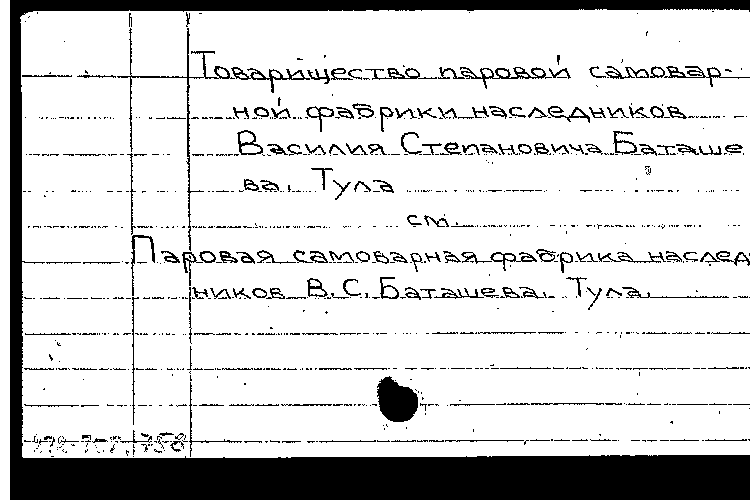 Товарищество паровой самовар-
ной фабрики наследников
Василия Степановича Баташе
ва. Тула
см.
Паровая самоварная фабрика наслед
ников В. С. Баташева. Тула.